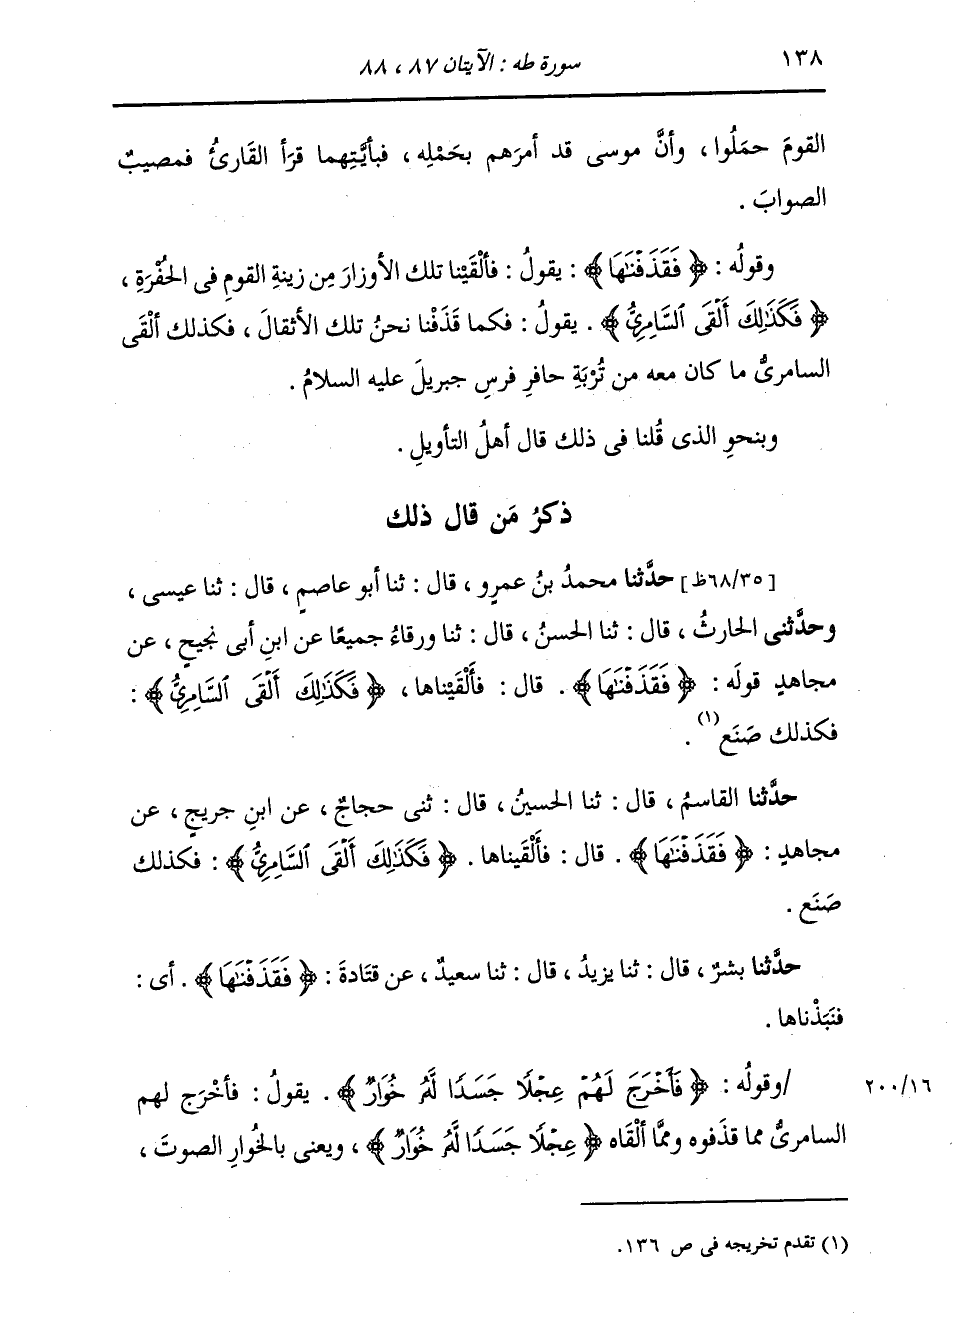 ١٣٨
سورة طه : الآيتان ٨٧ ، ٨٨
القومَ حمَلُوا ، وأنَّ موسى قد أمرَهم بحَمْلِه ، فبأيَّتِهما قرَأ القَارئُ فمصيبٌ
الصوابَ .
وقولُه : ﴿ فَقَذَفْنَٰهَا ﴾ : يقولُ : فألْقَيْنا تلك الأوزارَ مِن زينةِ القومِ فى الحُفْرَةِ ،
﴿ فَكَذَٰلِكَ أَلْقَى ٱلسَّامِرِىُّ ﴾ . يقولُ : فكما قَذَفْنا نحنُ تلك الأثقالَ ، فكذلك ألْقَى
السامرىُّ ما كان معه من تُرْبَةِ حافرِ فرسِ جبريلَ عليه السلامُ .
وبنحوِ الذى قُلنا فى ذلك قال أهلُ التأويلِ .
ذكرُ مَن قال ذلك
[٦٨/٣٥ظ] حدَّثنا محمدُ بنُ عمرٍو ، قال : ثنا أبو عاصمٍ ، قال : ثنا عيسى ،
وحدَّثنى الحارثُ ، قال : ثنا الحسنُ ، قال : ثنا ورقاءُ جميعًا عن ابنِ أبى نجيحٍ ، عن
مجاهدٍ قولَه : ﴿ فَقَذَفْنَٰهَا ﴾ . قال : فأَلْقَيْناها ، ﴿ فَكَذَٰلِكَ أَلْقَى ٱلسَّامِرِىُّ ﴾ :
فكذلك صَنَع(١) .
حدَّثنا القاسمُ ، قال : ثنا الحسينُ ، قال : ثنى حجاجٌ ، عن ابنِ جريجٍ ، عن
مجاهدٍ : ﴿ فَقَذَفْنَٰهَا ﴾ . قال : فأَلْقَيناها . ﴿ فَكَذَٰلِكَ أَلْقَى ٱلسَّامِرِىُّ ﴾ : فكذلك
صَنَع .
حدَّثنا بشرٌ ، قال : ثنا يزيدُ ، قال : ثنا سعيدٌ ، عن قتَادةَ : ﴿ فَقَذَفْنَٰهَا ﴾ . أى :
فنَبَذْناها .
٢٠٠/١٦ /وقولُه : ﴿ فَأَخْرَجَ لَهُمْ عِجْلًا جَسَدًا لَّهُۥ خُوَارٌ ﴾ . يقولُ : فأخْرَج لهم
السامرىُّ مما قذَفوه وممَّا ألْقَاه ﴿ عِجْلًا جَسَدًا لَّهُۥ خُوَارٌ ﴾ ، ويعنى بالخُوارِ الصوتَ ،
(١) تقدم تخريجه فى ص ١٣٦.